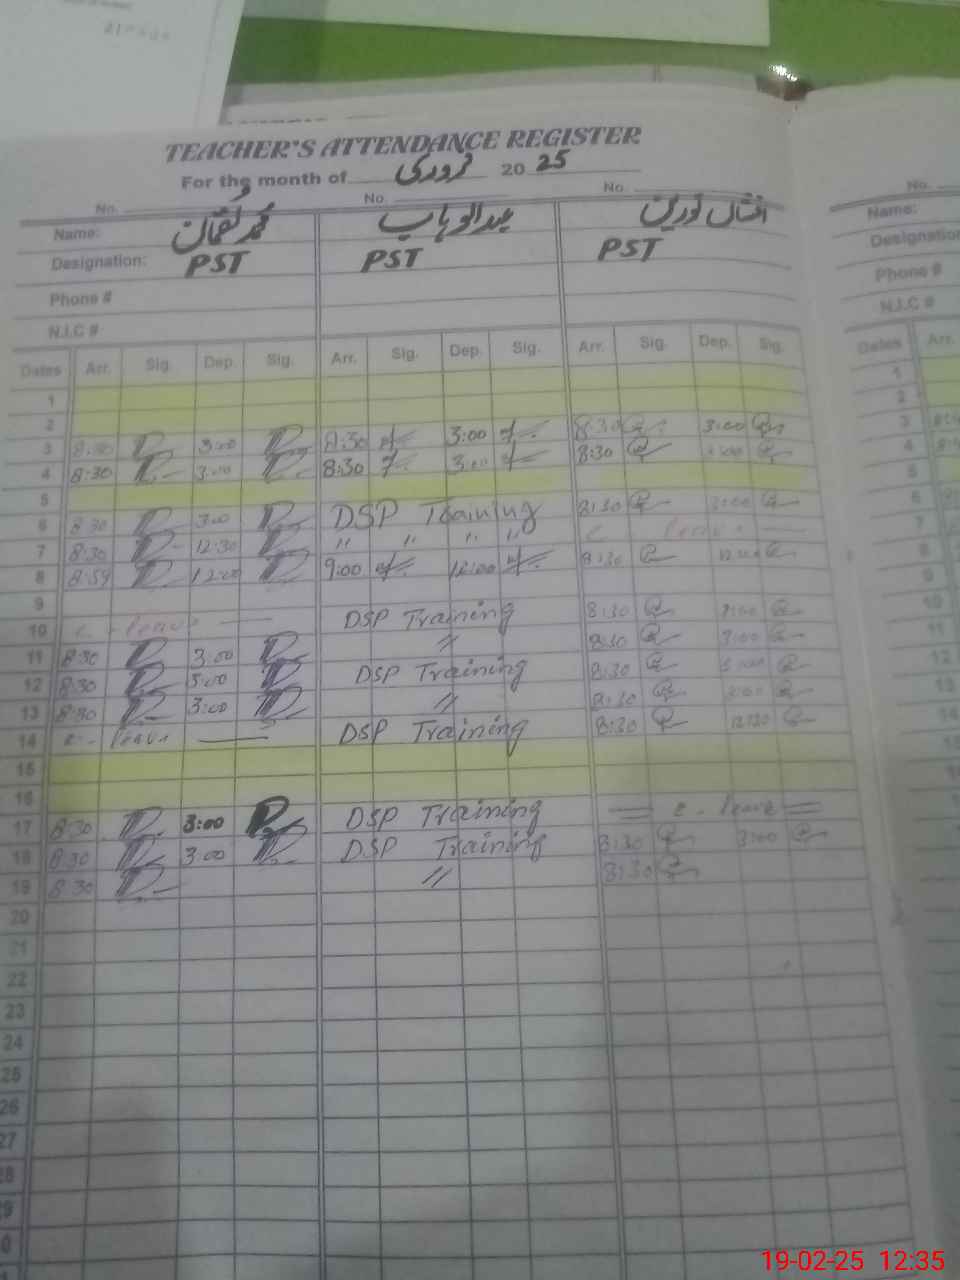 TEACHER'S ATTENDANCE REGISTER
For the month of فروری 20 25
No. No. No. No.
Name: محمد لقمان عبدالوہاب افشاں نورین Name:
Designation: PST PST PST Designation
Phone # Phone #
N.I.C # N.I.C #
Dates Arr. Sig. Dep. Sig. Arr. Sig. Dep. Sig. Arr. Sig. Dep. Sig. Dates Arr.
1 1
2 2
3 8:30 3:00 8:30 3:00 8:30 3:00 3
4 8:30 3:00 8:30 3:00 8:30 4
5 5
6 8:30 3:00 DSP Training 8:30 3:00 6
7 8:30 12:30 " " " " c leave 7
8 8:59 12:00 9:00 12:00 8:30 8
9 9
10 c - leave DSP Training 8:30 3:00 10
11 8:30 3:00 〃 8:30 3:00 11
12 8:30 3:00 DSP Training 8:30 12
13 8:30 3:00 〃 8:30 3:00 13
14 c - leave DSP Training 8:30 12:30 14
15
16
17 8:30 3:00 DSP Training c - leave
18 8:30 3:00 DSP Training 8:30 3:00
19 8:30 〃 8:30
20
21
22
23
24
25
26
27
28
29
0
19-02-25 12:35